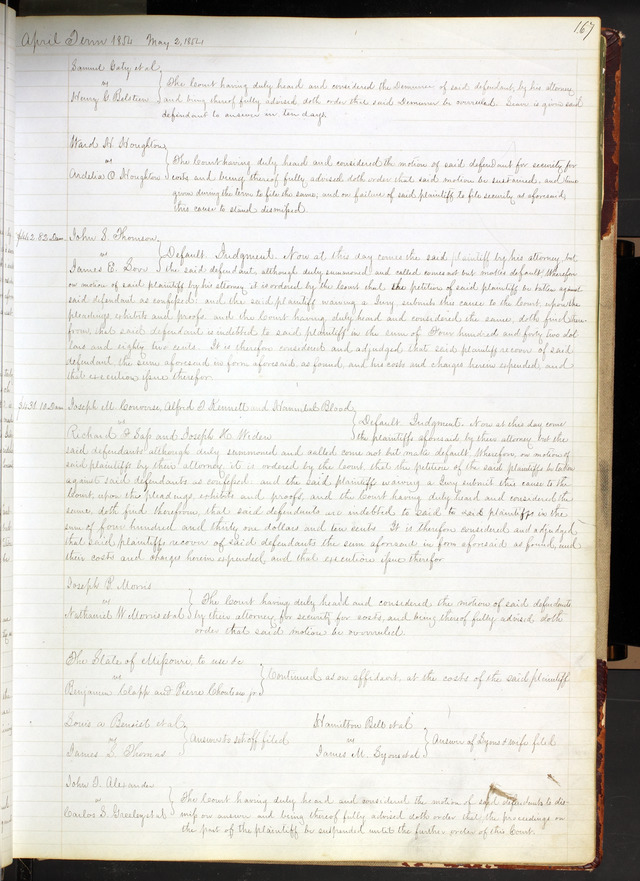 167
April Term 1854 May 2, 1854
Samuel Gaty et al
vs
Henry C Belstien
The Court having duly heard and considered the Demurrer of said defendant, by his attorney
and being thereof fully advised doth order that said Demurrer be overruled. Leave is given said
defendant to answer in ten days.
Ward H Houghton
vs
Ardelia O Houghton
The Court having duly heard and considered the motion of said defendant for security for
costs and being thereof fully advised, doth order that said motion be sustained, and time
given during the term to file the same, and on failure of said plaintiff to file security as aforesaid,
this cause to stand dismissed.
$442.82 Dam
John S Thomson
vs
James E
Default. Judgment. Now at this day comes the said plaintiff by his attorney, but
the said defendant although duly summoned and called comes not but makes default, Wherefore
on motion of said plaintiff by his attorney it is ordered by the Court that the petition of said plaintiff be taken against
said defendant as confessed: and the said plaintiff waiving a Jury submits this cause to the Court, upon the
pleadings exhibits and proofs and the Court having duly heard and considered the same, doth find there
from that said defendant is indebted to said plaintiff in the sum of Four hundred and forty two dol
lars and eighty two cents. It is therefore considered and adjudged that said plaintiff recover of said
defendant the sum aforesaid in form aforesaid as found, and his costs and charges herein expended, and
that execution issue therefor.
$431.10 Dam
Joseph M Converse, Alfred T Kennett and Hannibal Blood
vs
Richard F Sap and Joseph H Weden
Default. Judgment. Now at this day come
the plaintiffs aforesaid by their attorney but the
said defendants although duly summoned and called come not but make default Wherefore, on motion of
said plaintiffs by their attorney, it is ordered by the Court that the petition of the said plaintiffs be taken
against said defendants as confessed, and the said plaintiffs waiving a Jury submit this cause to the
Court, upon the pleadings, exhibits and proofs, and the Court having duly heard and considered the
same, doth find therefrom, that said defendants are indebted to said to said plaintiffs in the
sum of four hundred and thirty one dollars and ten cents. It is therefore considered and adjudged
that said plaintiffs recover of said defendants the sum aforesaid in form aforesaid as found, and
their costs and charges herein expended, and that execution issue therefor
Joseph P Morris
vs
Nathaniel W Morris et al
The Court having duly heard and considered the motion of said defendants
by their attorney for security for costs, and being thereof fully advised doth
order that said motion be overruled
The State of Missouri to use &c
vs
Benjamin Clapp and Pierre Chouteau jr
Continued as on affidavit at the costs of the said plaintiff
Louis A Benoist et al
vs
James S Thomas
Answer & set off filed
Hamilton Bell et al
vs
James M. Lyons et al
Answer of Lyons & wife filed
John T. Alexander
vs
Carlos S. Greeley et al
The Court having duly heard and considered the motion of said defendants to dis-
miss on answer and being thereof fully advised doth order that the proceedings on
the part of the plaintiff be suspended until the further order of this Court.